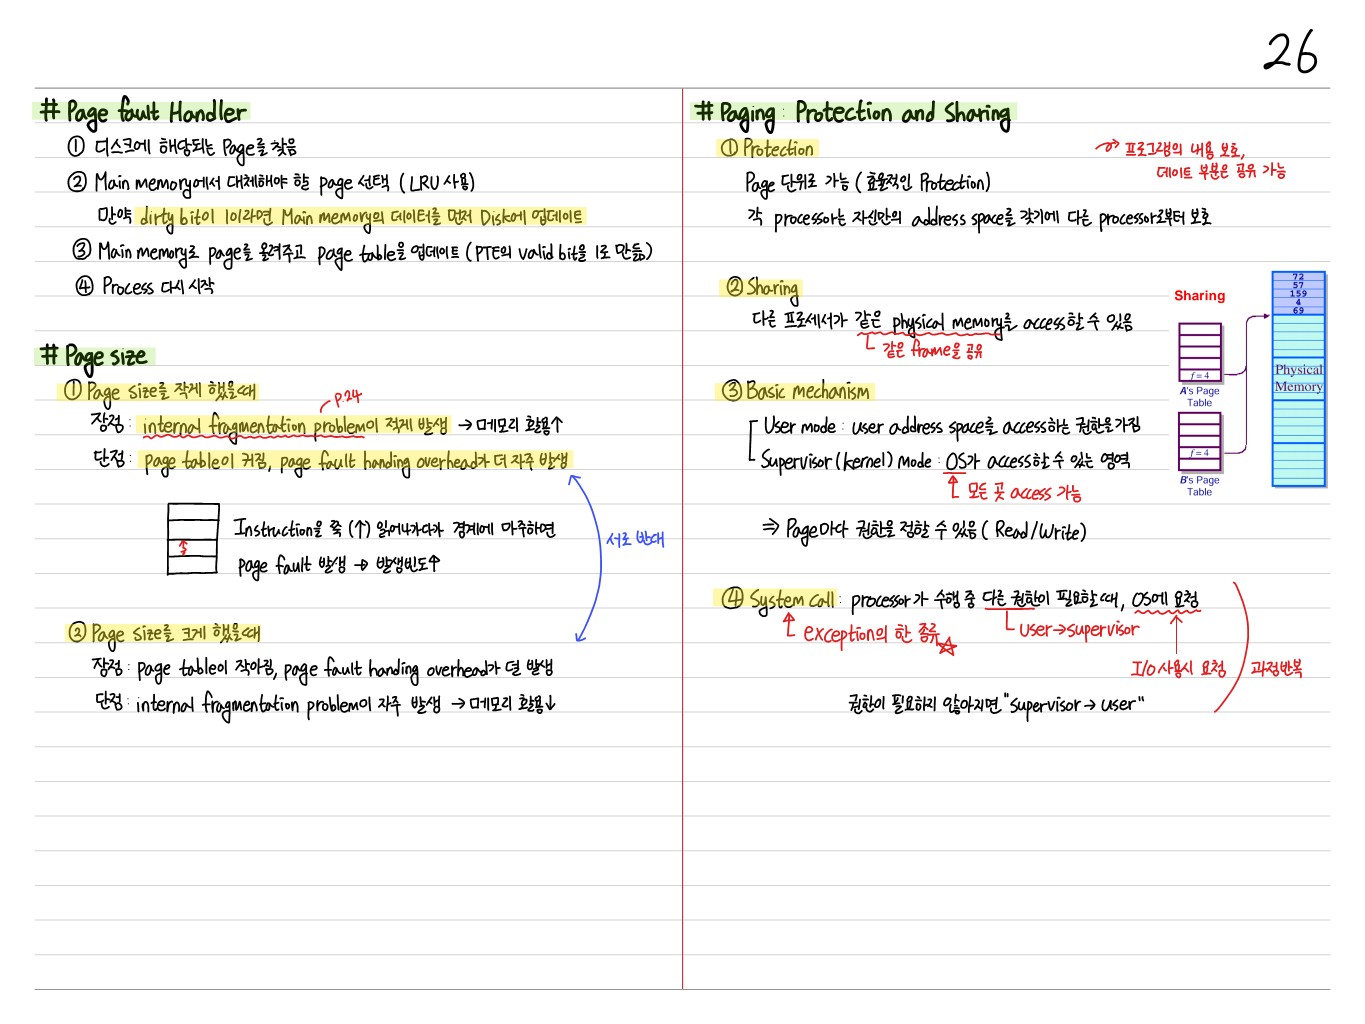 26
# Page fault Handler
① 디스크에 해당되는 Page를 찾음
② Main memory에서 대체해야 할 page 선택 (LRU 사용)
만약 dirty bit이 1이라면 Main memory의 데이터를 먼저 Disk에 업데이트
③ Main memory로 page를 올려주고 page table을 업데이트 (PTE의 valid bit을 1로 만듦)
④ Process 다시 시작
# Page size
① Page size를 작게 했을때
p.24
장점 : internal fragmentation problem이 적게 발생 → 메모리 활용↑
단점 : page table이 커짐, page fault handing overhead가 더 자주 발생
Instruction을 쭉 (↑) 읽어나가다가 경계에 마주하면
page fault 발생 → 발생빈도↑
서로 반대
② Page size를 크게 했을때
장점 : page table이 작아짐, page fault handing overhead가 덜 발생
단점 : internal fragmentation problem이 자주 발생 → 메모리 활용↓
# Paging : Protection and Sharing
① Protection
프로그램의 내용 보호,
데이트 부분은 공유 가능
Page 단위로 가능 (효율적인 Protection)
각 processor는 자신만의 address space를 갖기에 다른 processor로부터 보호
② Sharing
다른 프로세서가 같은 physical memory를 access할 수 있음
같은 frame을 공유
Sharing
72
57
159
4
69
f = 4
A's Page
Table
Physical
Memory
f = 4
B's Page
Table
③ Basic mechanism
User mode : user address space를 access하는 권한을 가짐
Supervisor (kernel) mode : OS가 access할 수 있는 영역
모든 곳 access 가능
⇒ Page마다 권한을 정할 수 있음 ( Read/Write)
④ System call : processor가 수행 중 다른 권한이 필요할 때, OS에 요청
exception의 한 종류☆
user→supervisor
I/O 사용시 요청
과정반복
권한이 필요하지 않아지면 "Supervisor → user"